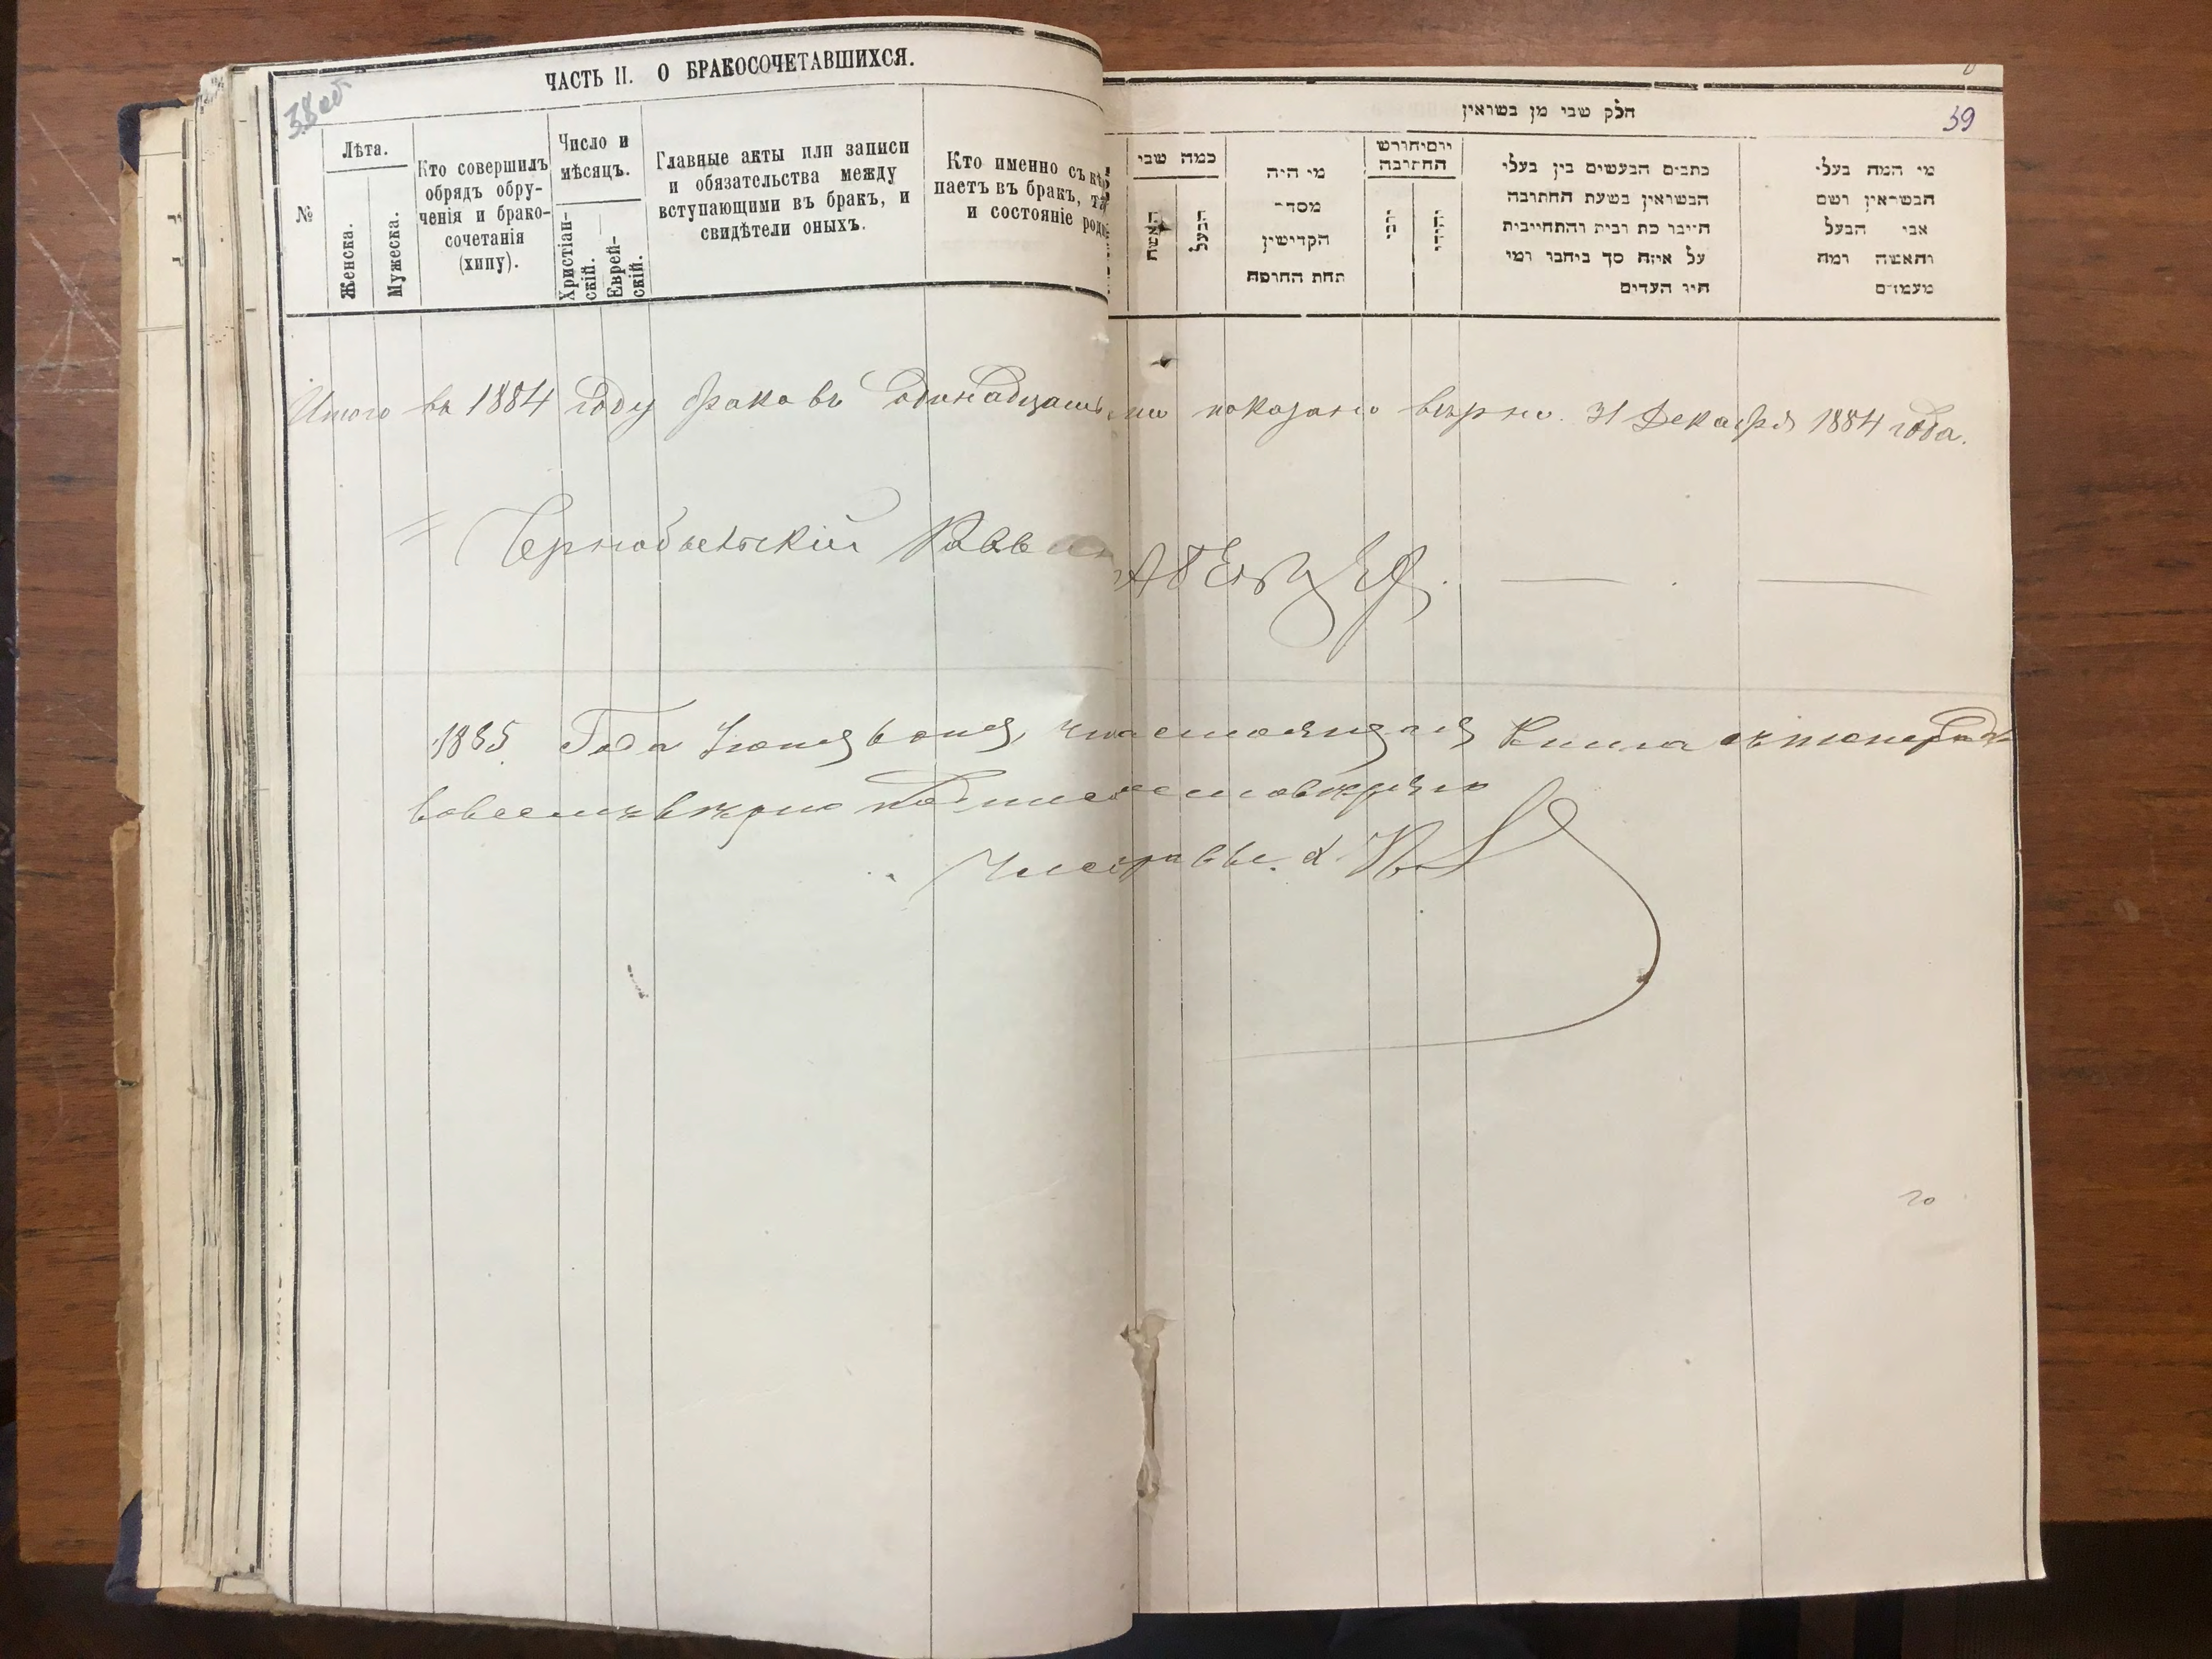 ЧАСТЬ II. О БРАКОСОЧЕТАВШИХСЯ.
38 об
№
Лѣта.
Женска.
Мужеска.
Кто совершилъ
обрядъ обру-
ченія и брако-
сочетанія
(хипу).
Число и
мѣсяцъ.
Христіан-
скій.
Еврей-
скій.
Главные акты или записи
и обязательства между
вступающими въ бракъ, и
свидѣтели оныхъ.
Кто именно съ
паетъ въ бракъ,
и состояніе
חלק שבי מן בשואין
39
כמה שבי
האשה
הבעל
מי היה
מסדר
הקדישין
תחת החופה
יום חורש
החתובה
כתבים הבעשים בין בעלי
הבשואין בשעת החתובה
חייבו כת ובית והתחייבית
על איזה סך ביחבו ומי
היו העדים
מי המה בעלי
הבשואין ושם
אבי הבעל
והאשה ומה
מעמדם
Итого въ 1884 году браковъ одинадцать показано вѣрно. 31 Декабря 1884 года.
Чернобыльскій
1885 Года Іюня настоящая Книга
вовсемъ вѣрно
20